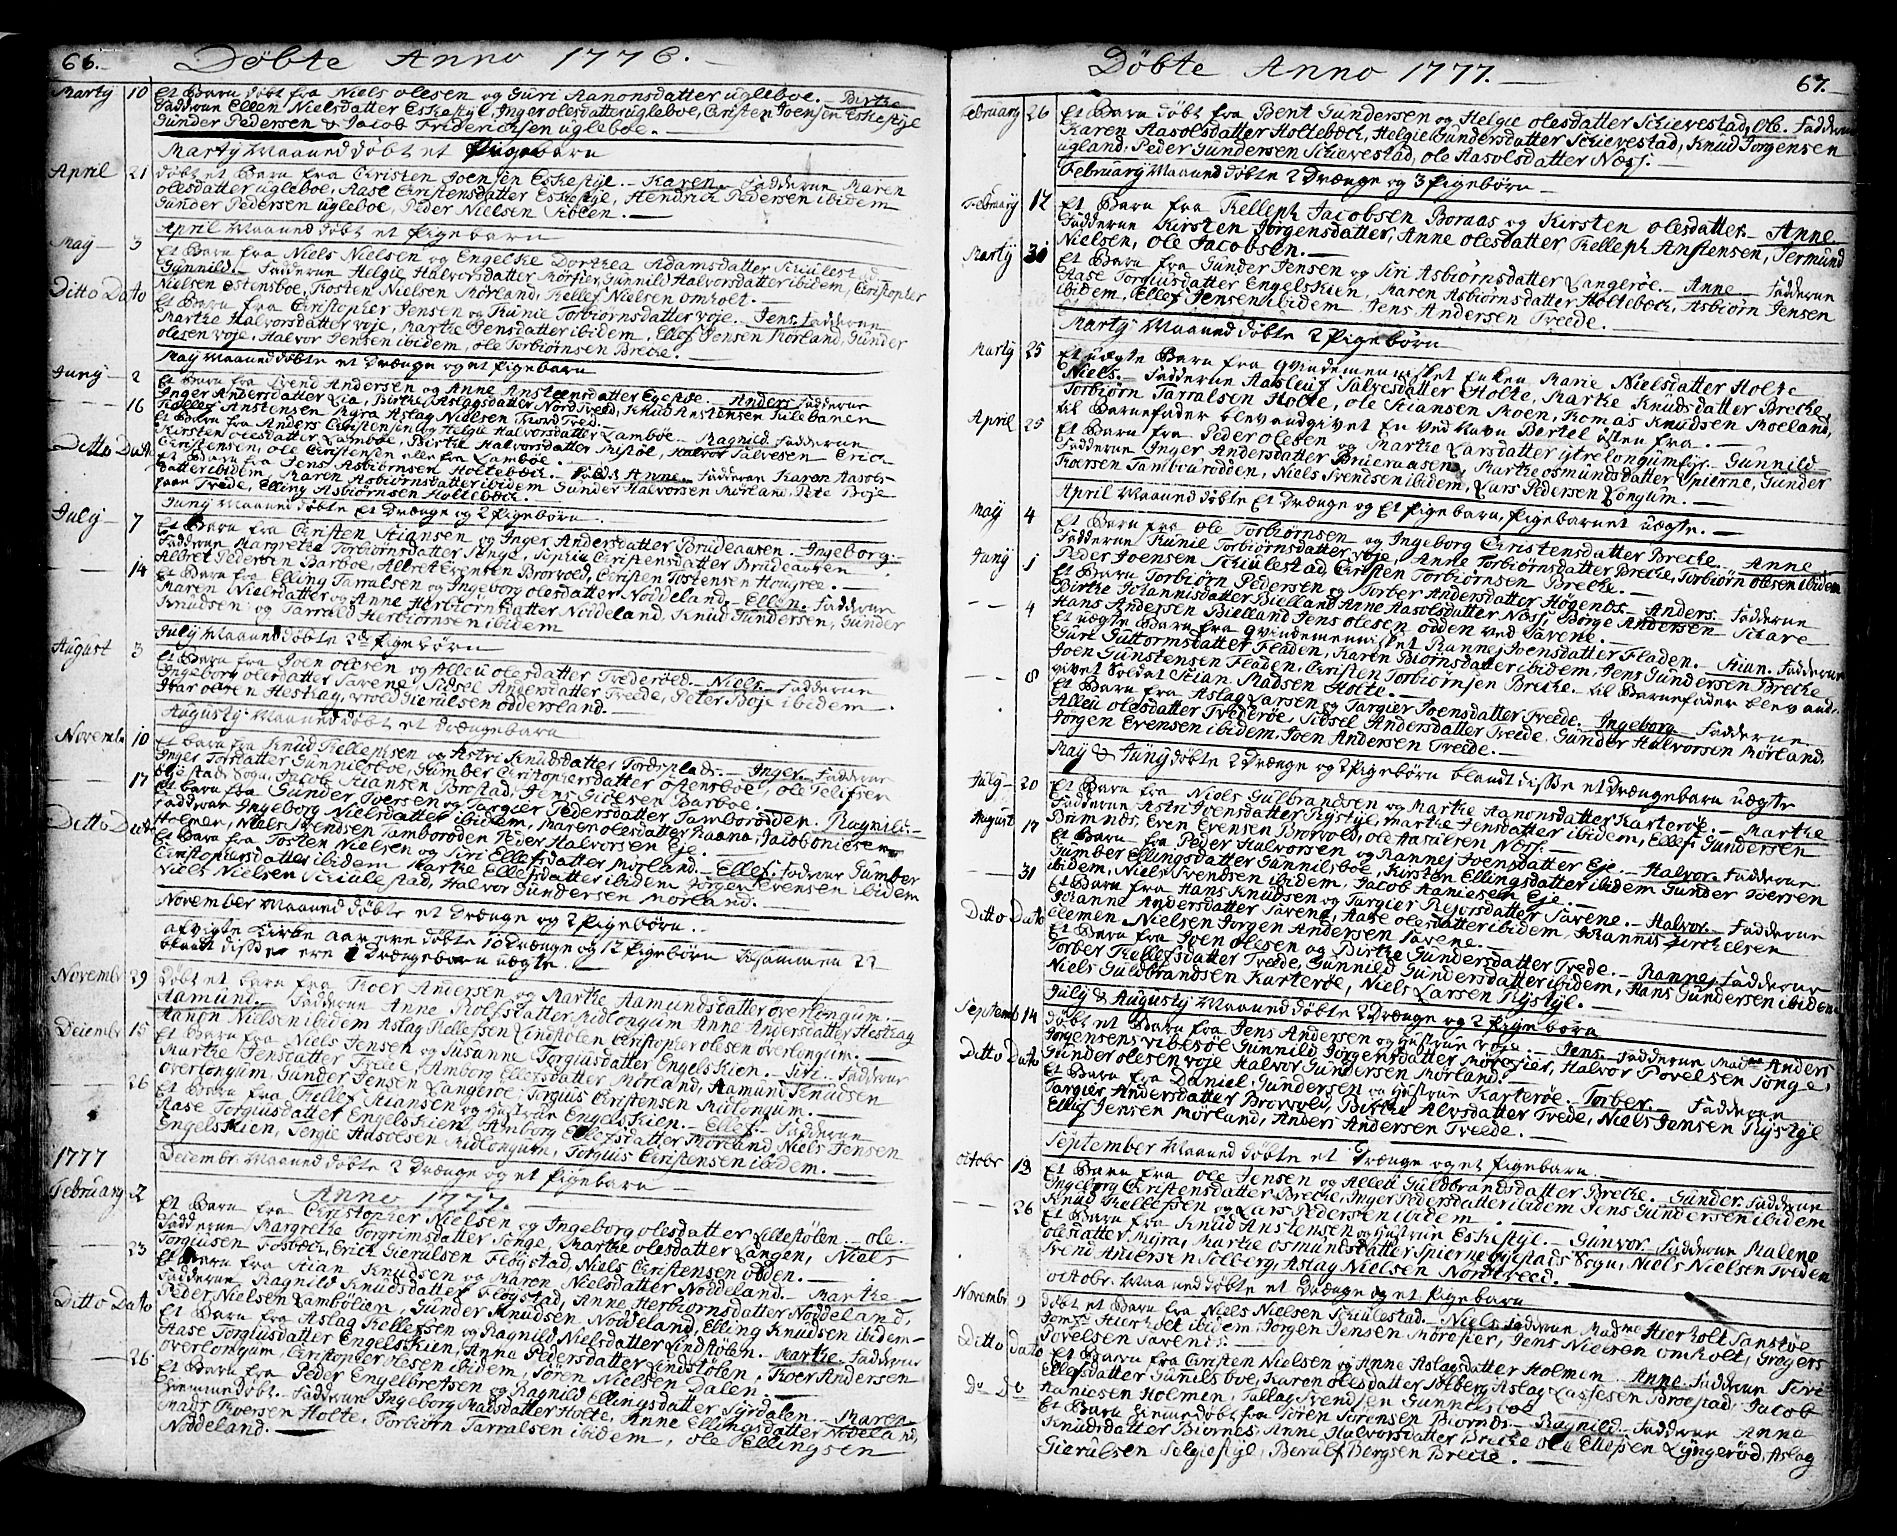 66.
Döbte Anno 1776.
Marty 10 Et Barn döbt fra Niels olesen og Guri Aanonsdatter ugleboe. Birthe
Fadderne Ellen Nielsdatter Eskestÿl, Inger olesdatter ugleboe, Christen Joensen Eskestÿl
Gunder Pedersen & Jacob Friderichsen ugleboe.
Marty Maaned döbt et Pigebarn
April 21 döbt et Barn fra Christen Joensen Eskestÿl. Karen. Fadderne Maren
olesdatter ugleboe, Aase Christensdatter Eskestÿl, Hendrich Pedersen ibidem
Gunder Pedersen ugleboe, Peder Nielsen
April Maaned döbt et Pigebarn
May 3 Et Barn fra Niels Nielsen og Engelke Dorthea Adamsdatter Schiulestad
Gunnild. Fadderne Helgie Halvorsdatter Morfier, Gunnild Halvorsdatter ibidem, Christopher
Nielsen Estensboe, Tosten Nielsen Mörland, Kellef Nielsen omholt.
Ditto Dato Et Barn fra Christopher Jensen og Kunie Torbiörnsdatter voje. Jens. Fadderne
Marthe Halvorsdatter voje, Marthe Jensdatter ibidem, Ellef Jensen Mörland, Gunder
olesen voje, Halvor Jensen ibidem, ole Torbiörnsen Breche.
May Maaned döbte et Drænge og et Pigebarn
Juny 2 Et Barn fra Svend Andersen og Anne Anstensdatter Egestöl. Anders Fadderne
Inger Andersdatter Lia, Birthe Aslagsdatter Nordtreed, Knud Anstensen
Kellef Anstensen Myra Aslag Nielsen
16 Et Barn fra Anders Christensen og Helgie Halvorsdatter Lamböe. Magnild. Fadderne
Kirsten olesdatter Lamböe, Birthe Halvorsdatter Risöe, Halvor Salvesen
Christensen, ole Christensen
Ditto Dato Et Barn fra Jens Asbiörnsen Holtebech. Anne. Fadderne Karen Aasols-
datter ibidem Maren Asbiörnsdatter ibidem Gunder Halvorsen Mörland, Pete Boje
Trede, Elling Asbiörnsen Holtebech.
Juny Maaned döbte Et Drænge og 2 Pigebörn.
July 7 Et Barn fra Christen Stiansen og Inger Andersdatter Brudeaasen. Ingeborg.
Fadderne Margrethe Torbiörnsdatter Songe, Sophia Christensdatter Brudeaasen
Albret Pedersen Barboe, Albret Evensen Brovold, Christen Tostensen
14 Et Barn fra Elling Tarralsen og Ingeborg olesdatter Noddeland. Ellen. Fadderne
Maren Nielsdatter og Anne Herbiörnsdatter Noddeland, Knud Gundersen, Gunder
Knudsen og Tarrald Herbiörnsen ibidem
July Maaned döbte 2de Pigebörn
August 3 Et Barn fra Joen olesen og Alleu olesdatter Trederöed. Niels. Fadderne
Ingeborg olesdatter Savene, Sidsel Andersdatter Treede, Peter Boje ibidem
Ivar olsen Hesthag, Wrold Gierulsen oddersland.
Augusty Maaned döbt et Drængebarn
Novembr 10 Et barn fra Knud Kellephsen og Astri Knudsdatter Fordsplads. Inger. Fadderne
Inger Torsdatter Gunnielsboe, Gumber Christophersdatter Ostensboe, ole Tellefsen
Sogn, Jacob Stiansen Brostad, Jens
17 Et barn fra Gunder Joersen og Targier Pedersdatter Tamborodden. Ragnild.
Fadderne Ingeborg Nielsdatter ibidem, Maren olesdatter Raane, Jacob
Holmen, Niels Svendsen Tamboroden Peder Halvorsen Eje.
Ditto Dato Et Barn fra Tosten Nielsen og Siri Ellefsdatter Mörland. Ellef. Fadderne Gumber
Christophersdatter ibidem Marthe Ellefsdatter ibidem Jörgen Evensen ibidem
Niels Nielsen Schiulestad, Halvor Gundersen Mörland.
November Maaned döbte et Drænge og 2 Pigebörn.
afvigte Kirke Aar ere döbte 10 Drænge og 12 Pigebörn tilsammen 22
blandt disse ere 2 Drængebarn uægte.
Novembr 29 Döbt et barn fra Troer Andersen og Marthe Aamundsdatter överlongum.
Aamund. Fadderne Anne Rolfsdatter Midlongum Anne Andersdatter Hesthag
Aanon Nielsen ibidem Aslag Kellefsen Lindstolen Christopher olesen överlongum.
Decembr 15 Et Barn fra Niels Jensen og Susanne Torgiusdatter Engelskien. Siri. Fadderne
Marthe Jensdatter Trede, Amborg Ellefsdatter Mörland, Aamund Knudsen
överlongum, Gunder Jensen Langeröe, Torgius Christensen Midlongum.
26 Et Barn fra Kellef Stiansen og Hustrue Engelskien. Ellef. Fadderne
Aase Torgiusdatter Engelskien, Amborg Ellefsdatter Mörland, Niels Jensen
Engelskien, Tergie Aasolsen Midlongum, Torgius Christensen ibidem.
1777 Decembr: Maaned döbte 2 Drænge og et Pigebarn
Anno 1777.
February 2 Et Barn fra Christopher Nielsen og Ingeborg olesdatter Lillestölen. ole.
Fadderne Margrethe Torgrimsdatter Songe, Marthe olesdatter Langen, Niels
Torgiusen Fosbech, Erich Gierulsen Flögstad, Niels Christensen odden.
23 Et Barn fra Stian Knudsen og Maren Nielsdatter Noddeland. Marthe
Fadderne Ragnild Knudsdatter Flögstad, Anne Herbiörnsdatter Noddeland,
Peder Nielsen Lambölien, Gunder Knudsen Noddeland, Elling Knudsen ibidem
Ditto Dato Et Barn fra Aslag Kellefsen og Ragnild Nielsdatter Lindstölen. Marthe. Fadderne
Aase Torgiusdatter Engelskien, Anne Pedersdatter Lindstölen, Troer Andersen
överlongum, Christopher olesen ibidem, Sören Nielsen Dalen.
26 Et Barn fra Peder Engelbretsen og Ragnild Ellingsdatter Syrdalen. Maren
hiemmedöbt. Fadderne Ingeborg Madsdatter Holte, Anne Ellingsdatter Nodeland,
Mads Troersen Holte, Torbiörn Tarralsen ibidem, ole Ellingsen
Noddeland.
Döbte Anno 1777.
67.
February 26 Et Barn döbt fra Bent Gundersen og Helgie olesdatter Schierestad, Ole. Fadderne
Karen Aasolsdatter Holtebech, Helgie Gundersdatter Schierestad, Knud Torgensen
ugland, Peder Gundersen Schierestad, ole Aasolsdatter Næss.
February Maaned döbte 2 Drænge og 3 Pigebörn
February 12 Et Barn fra Kelleph Jacobsen Boraas og Kirsten olesdatter. Anne
Fadderne Kirsten Jörgensdatter, Anne olesdatter Kelleph Anstensen, Termund
Nielsen, ole Jacobsen.
Marty 30 Et Barn fra Gunder Jensen og Siri Asbiörnsdatter Langeröe. Anne Fadderne
Aase Torgiusdatter Engelskien, Maren Asbiörnsdatter Holtebech, Asbiörn Jensen
ibidem, Ellef Jensen ibidem, Jens Andersen Treede.
Marty Maaned döbte 2 Pigebörn
Marty 25 Et uægte Barn fra Qvindemennisket Enken Marie Nielsdatter Holte
Niels. Fadderne Aasleuf Salvesdatter Holte, Marthe Knudsdatter Breche,
Torbiörn Tarralsen Holte, ole Stiansen Moen, Tomas Knudsen Moeland,
til Barnefader blev angivet En ved Navn Bertel
April 25 Et Barn fra Peder olesen og Marthe Larsdatter ytrelongum. Gunnild
Fadderne Inger Andersdatter Brueraasen, Marthe osmundsdatter Spierne, Gunder
Troersen Tamborodden, Niels Svendsen ibidem, Lars Pedersen Longum.
April Maaned döbte Et Drænge og Et Pigebarn, Pigebarnet uægte.
May 4 Et Barn fra ole Torbiörnsen og Ingeborg Christensdatter Breche. Anne
Fadderne Kunild Torbiörnsdatter voje, Anne Torbiörnsdatter Breche, Torbiörn olesen ibidem
Peder Joensen Schiulestad Christen Torbiörnsen Breche.
Juny 1 Et Barn Torbiörn Pedersen og Torber Andersdatter Högenes. Anders. Fadderne
Birthe Johannisdatter Bielland Anne Aasolsdatter Næss, Börge Andersen Schare
Hans Andersen Bielland Jens olesen odden ved Savene.
4 Et uægte Barn fra Qvindemennisket Rannej Joensdatter Fladen. Stian. Fadderne
Guri Guttormsdatter Fladen, Karen Biörnsdatter ibidem, Jens Gundersen Breche
Joen Gunstensen Fladen, Christen Torbiörnsen Breche. til Barnefader blev and-
givet Soldat Stian Madsen Holte.
8 Et Barn fra Aslag Larsen og Targier Joensdatter Treede. Ingeborg Fadderne
Alleu olesdatter Trederöe, Sidsel Andersdatter Treede, Gunder Halvorsen Mörland,
Jörgen Evensen ibidem, Joen Andersen Treede.
May & Juny döbte 2 Drænge og 2 Pigebörn blandt disse et Drængebarn uægte
July 20 Et Barn fra Niels Gulbrandsen og Marthe Aanonsdatter Karteröe. Marthe
Fadderne Astri Joensdatter Rystÿl, Marthe Jensdatter ibidem, Ellef Gundersen
Even Evensen Brovold, ole Aasulsen Næss.
August 17 Et Barn fra Peder Halvorsen og Rannej Joensdatter Eje. Halvor. Fadderne
Gumber Ellingsdatter Gunnilsboe, Kirsten Ellingsdatter ibidem Gunder Joersen
ibidem, Niels Svendsen ibidem, Jacob Aaniesen Eje.
31 Et Barn fra Hans Knudsen og Targier Rejorsdatter Savene. Halvor. Fadderne
Johanne Andersdatter Savene, Aase olesdatter ibidem, Johannis Zirchelsen
Clemen Nielsen Jorgen Andersen Savene.
Ditto Dato Et Barn fra Joen olesen og Birthe Gundersdatter Trede. Rannej. Fadderne
Torber Kellefsdatter Trede, Gunnild Gundersdatter ibidem, Hans Gundersen ibidem
Niels Guldbrandsen Karteröe, Niels Larsen Rÿstÿl.
July & Augusty Maaned döbte 2 Drænge og 2 Pigebörn
Septemb 14 döbt et Barn fra Jens Andersen og Hustrue voje. Jens. Fadderne Madme Anders
Jörgensens vibesöe Gunnild Jörgensdatter Moresier, Halvor Povelsen Songe,
Gunder olesen voje Halvor Gundersen Mörland.
Ditto Dato Et Barn fra Daniel Gundersen og Hustrue Karteröe. Torber. Fadderne
Targier Andersdatter Brovold, Birthe Alvsdatter Trede, Niels Jensen Rÿstÿl
Ellef Jensen Mörland, Anders Andersen Treede.
September Maaned döbte et Drænge og et Pigebarn.
octobr 13 Et Barn fra ole Jensen og Allett Guldbrandsdatter Breche. Gunder. Fadderne
Ingeborg Christensdatter Breche, Inger Pedersdatter ibidem Jens Gundersen ibidem
Knud Kellefsen og Lars Pedersen ibidem.
26 Et Barn fra Knud Anstensen og Hustrue Eskestÿl. Gunvor. Fadderne Malene
olesdatter Mÿra, Marthe Osmundsdatter Spierne öyestads Sogn, Niels Nielsen Treden
Svend Andersen Solberg, Aslag Nielsen Nordtreed.
octobr. Maaned döbte et Drænge og et Pigebarn
Novembr 9 döbt et Barn fra Niels Nielsen Schiulestad. Niels. Fadderne Madme Hierholt Sanstöe
Jomfr Hierholt ibidem, Jörgen Jensen Morefier, Jens Nielsen omholt, Gregers
Povelsen Savenes.
Ditto Dato Et Barn fra Christen Nielsen og Anne Aslagsdatter Holmen. Anne. Fadderne Siri
Ellefsdatter Gunilsboe, Karen olesdatter Solberg, Aslag Lassesen Broestad, Jacob
Aaniesen Holmen, Tallag Svendsen Gunnelsboe
Do Do Et Barn hiemmedöbt fra Sören Sörensen Biornes. Ragnild. Fadderne Anna
Knudsdatter Biornes, Anne Halvorsdatter Breche ole Ellefsen Lyngeröd, Aslag
Gierulsen Selgiestÿl, Berulf Bergsen Breche.